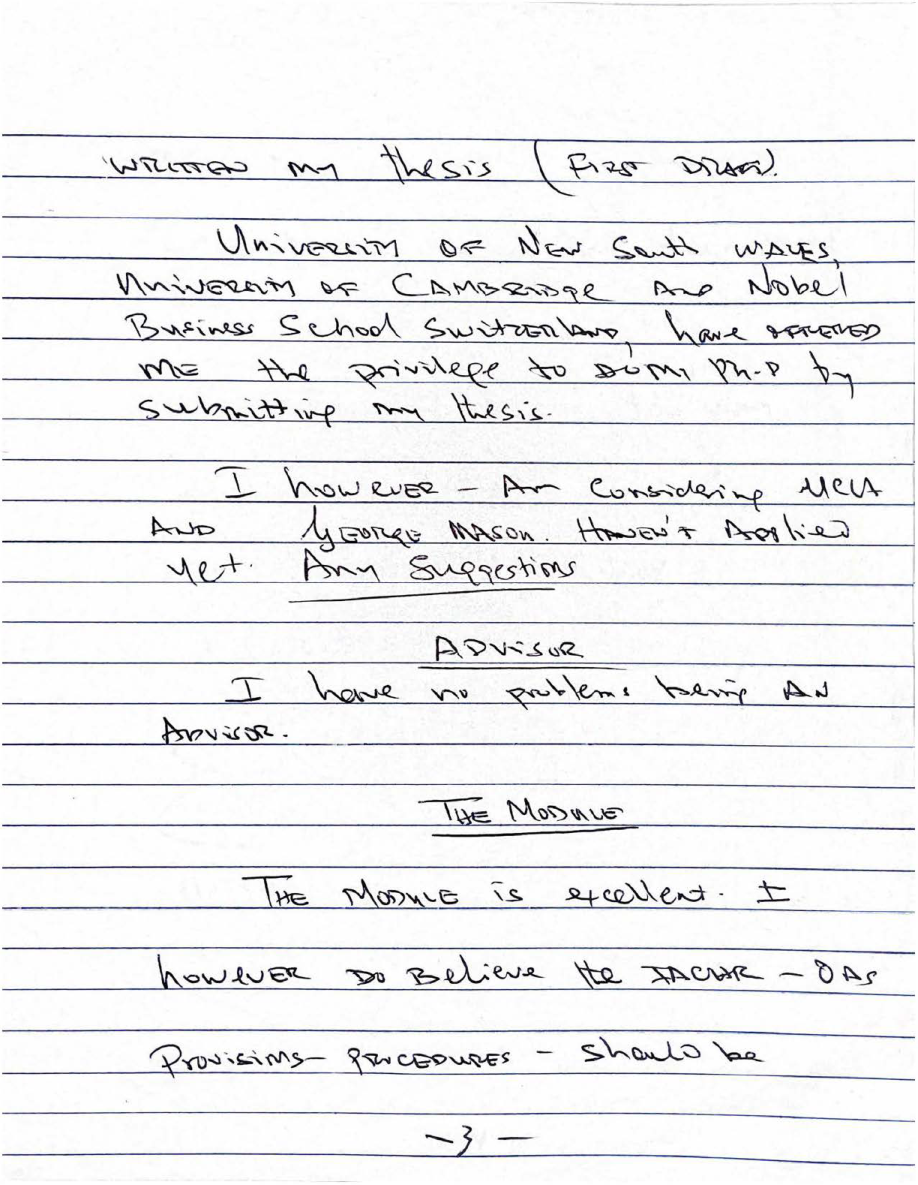 WRITTEN my thesis (FIRST DRAFT).
UNIVERSITY OF NEW South WALES,
UNIVERSITY OF CAMBRIDGE AND Nobel
Business School SWITZERLAND, have OFFERED
ME the privilege to DO MY Ph.D by
submitting my thesis.
I howEVER - Am Considering UCLA
AND GEORGE MASON. HAVEN'T Applied
yet. Any Suggestions
ADVISOR
I have no problems being AN
ADVISOR.
THE MODULE
THE MODULE is excellent. I
howEVER DO Believe the IACHR - OAS
Provisions - PROCEDURES - should be
- 3 -